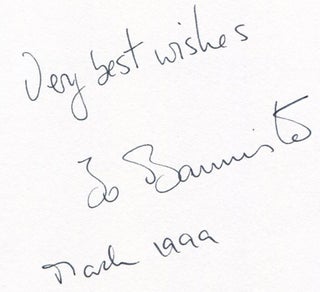 Very best wishes
Jo Bannister
March 1999